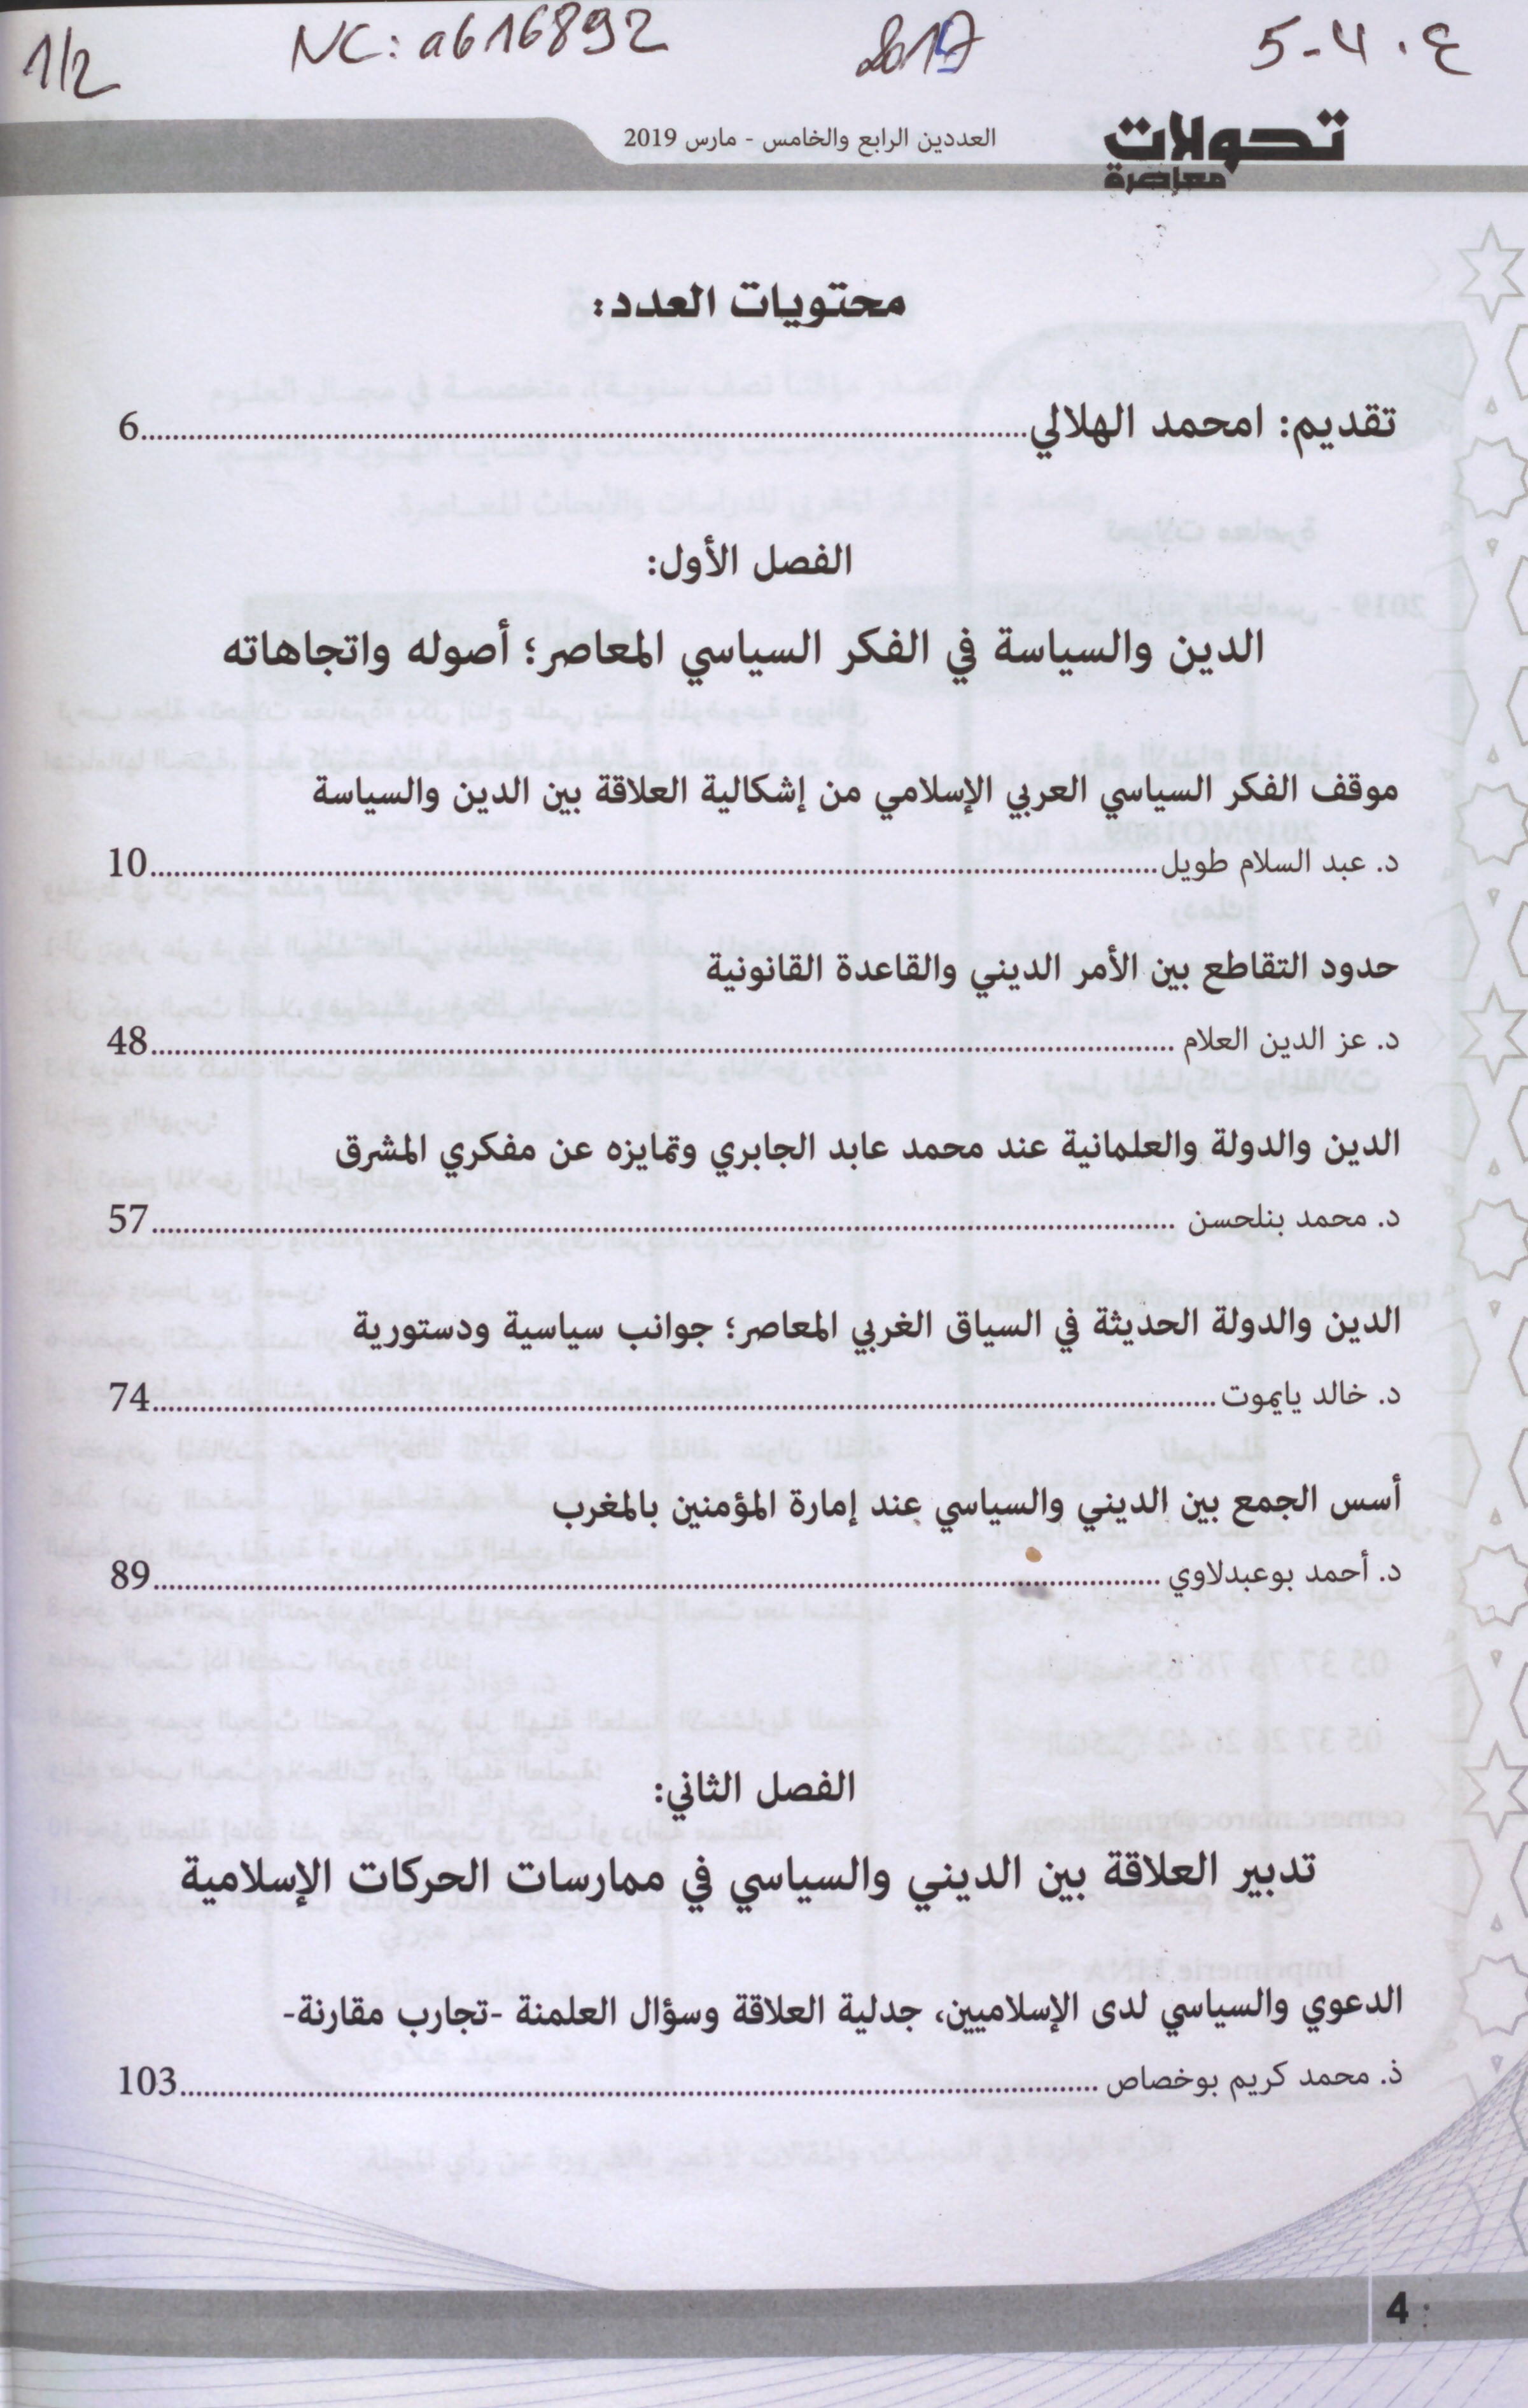 1/2 NC: a616892 2017 5-4 . ع
تحولات معاصرة
العددين الرابع والخامس - مارس 2019
محتويات العدد:
تقديم: امحمد الهلالي 6
الفصل الأول:
الدين والسياسة في الفكر السياسي المعاصر؛ أصوله واتجاهاته
موقف الفكر السياسي العربي الإسلامي من إشكالية العلاقة بين الدين والسياسة
د. عبد السلام طويل 10
حدود التقاطع بين الأمر الديني والقاعدة القانونية
د. عز الدين العلام 48
الدين والدولة والعلمانية عند محمد عابد الجابري وتمايزه عن مفكري المشرق
د. محمد بنلحسن 57
الدين والدولة الحديثة في السياق الغربي المعاصر؛ جوانب سياسية ودستورية
د. خالد يايموت 74
أسس الجمع بين الديني والسياسي عند إمارة المؤمنين بالمغرب
د. أحمد بوعبدلاوي 89
الفصل الثاني:
تدبير العلاقة بين الديني والسياسي في ممارسات الحركات الإسلامية
الدعوي والسياسي لدى الإسلاميين، جدلية العلاقة وسؤال العلمنة -تجارب مقارنة-
ذ. محمد كريم بوخصاص 103
4